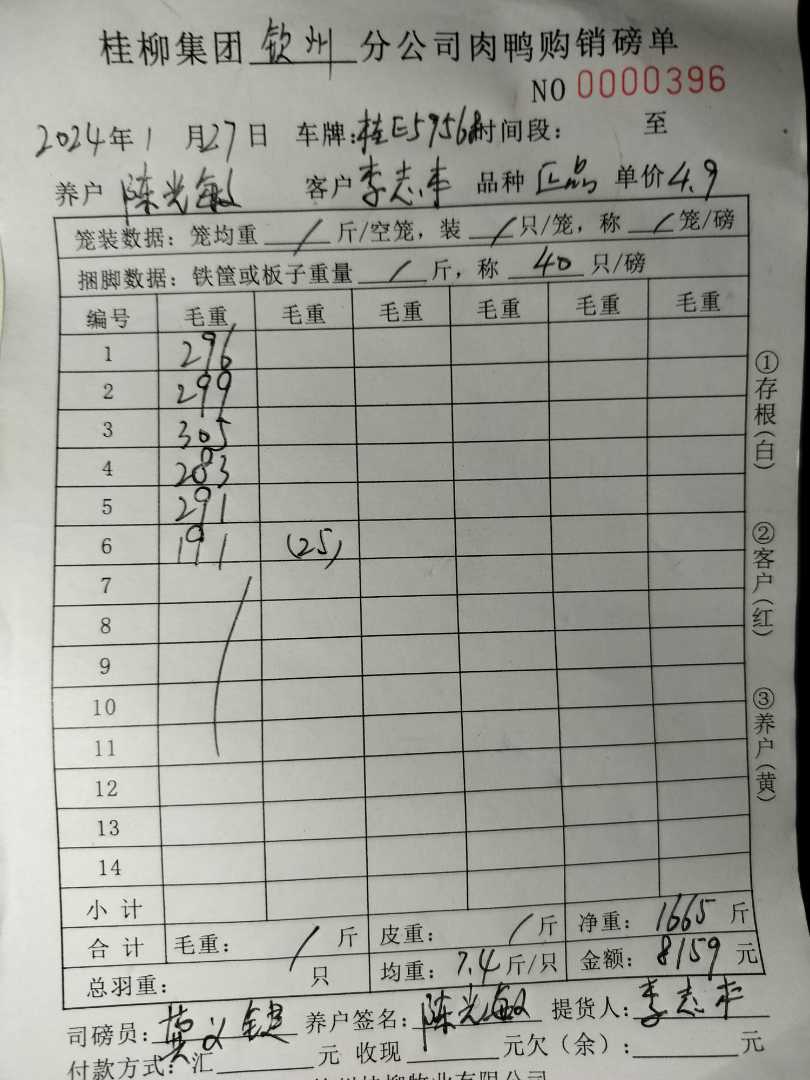 桂柳集团钦州分公司肉鸭购销磅单
NO 0000396
2024年1月27日 车牌:桂E59568时间段: 至
养户 陈光敏 客户 李志丰 品种 正品 单价4.9
笼装数据: 笼均重 / 斤/空笼, 装 / 只/笼, 称 / 笼/磅
捆脚数据: 铁筐或板子重量 / 斤, 称 40 只/磅
编号 毛重 毛重 毛重 毛重 毛重 毛重
1 296
2 299
3 305
4 283
5 291
6 191 (25)
7
8
9
10
11
12
13
14
小计
合计 毛重: / 斤 皮重: / 斤 净重: 1665 斤
总羽重: 只 均重: 7.4斤/只 金额: 8159 元
司磅员: 黄义键 养户签名: 陈光敏 提货人: 李志丰
付款方式: 汇 元 收现 元欠(余): 元
①存根(白)
②客户(红)
③养户(黄)